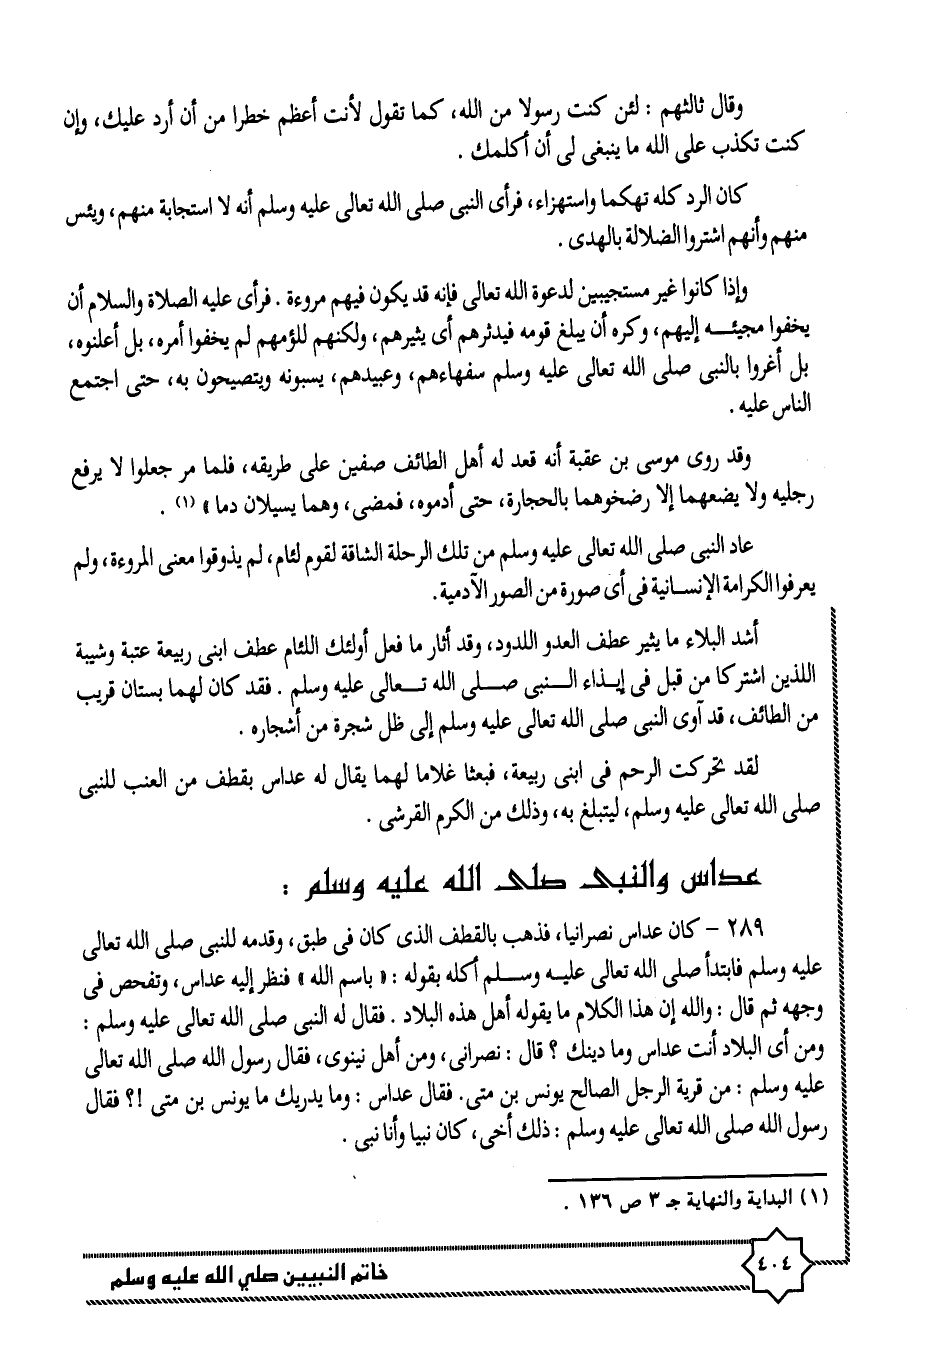 وقال ثالثهم : لئن كنت رسولا من الله، كما تقول لأنت أعظم خطرا من أن أرد عليك، وإن
كنت تكذب على الله ما ينبغى لى أن أكلمك .
كان الرد كله تهكما واستهزاء، فرأى النبى صلى الله تعالى عليه وسلم أنه لا استجابة منهم، ويئس
منهم وأنهم اشتروا الضلالة بالهدى .
وإذا كانوا غير مستجيبين لدعوة الله تعالى فإنه قد يكون فيهم مروءة . فرأى عليه الصلاة والسلام أن
يخفوا مجيئه إليهم، وكره أن يبلغ قومه فيدثرهم أى يثيرهم، ولكنهم للؤمهم لم يخفوا أمره، بل أعلنوه،
بل أغروا بالنبى صلى الله تعالى عليه وسلم سفهاءهم، وعبيدهم، يسبونه ويتصيحون به، حتى اجتمع
الناس عليه .
وقد روى موسى بن عقبة أنه قعد له أهل الطائف صفين على طريقه، فلما مر جعلوا لا يرفع
رجليه ولا يضعهما إلا رضخوهما بالحجارة، حتى أدموه، فمضى، وهما يسيلان دما » (١) .
عاد النبى صلى الله تعالى عليه وسلم من تلك الرحلة الشاقة لقوم لئام، لم يذوقوا معنى المروءة، ولم
يعرفوا الكرامة الإنسانية فى أى صورة من الصور الآدمية.
أشد البلاء ما يثير عطف العدو اللدود، وقد أثار ما فعل أولئك اللئام عطف ابنى ربيعة عتبة وشيبة
اللذين اشتركا من قبل فى إيذاء النبى صلى الله تعالى عليه وسلم . فقد كان لهما بستان قريب
من الطائف، قد آوى النبى صلى الله تعالى عليه وسلم إلى ظل شجرة من أشجاره .
لقد تحركت الرحم فى ابنى ربيعة، فبعثا غلاما لهما يقال له عداس بقطف من العنب للنبى
صلى الله تعالى عليه وسلم، ليتبلغ به، وذلك من الكرم القرشى .
عداس والنبى صلى الله عليه وسلم :
٢٨٩ – كان عداس نصرانيا، فذهب بالقطف الذى كان فى طبق، وقدمه للنبى صلى الله تعالى
عليه وسلم فابتدأ صلى الله تعالى عليه وسلم أكله بقوله : « باسم الله » فنظر إليه عداس، وتفحص فى
وجهه ثم قال : والله إن هذا الكلام ما يقوله أهل هذه البلاد . فقال له النبى صلى الله تعالى عليه وسلم :
ومن أى البلاد أنت عداس وما دينك ؟ قال : نصرانى، ومن أهل نينوى، فقال رسول الله صلى الله تعالى
عليه وسلم : من قرية الرجل الصالح يونس بن متى. فقال عداس : وما يدريك ما يونس بن متى !؟ فقال
رسول الله صلى الله تعالى عليه وسلم : ذلك أخى، كان نبيا وأنا نبى .
(١) البداية والنهاية جـ ٣ ص ١٣٦ .
٤٠٤
خاتم النبيين صلي الله عليه وسلم